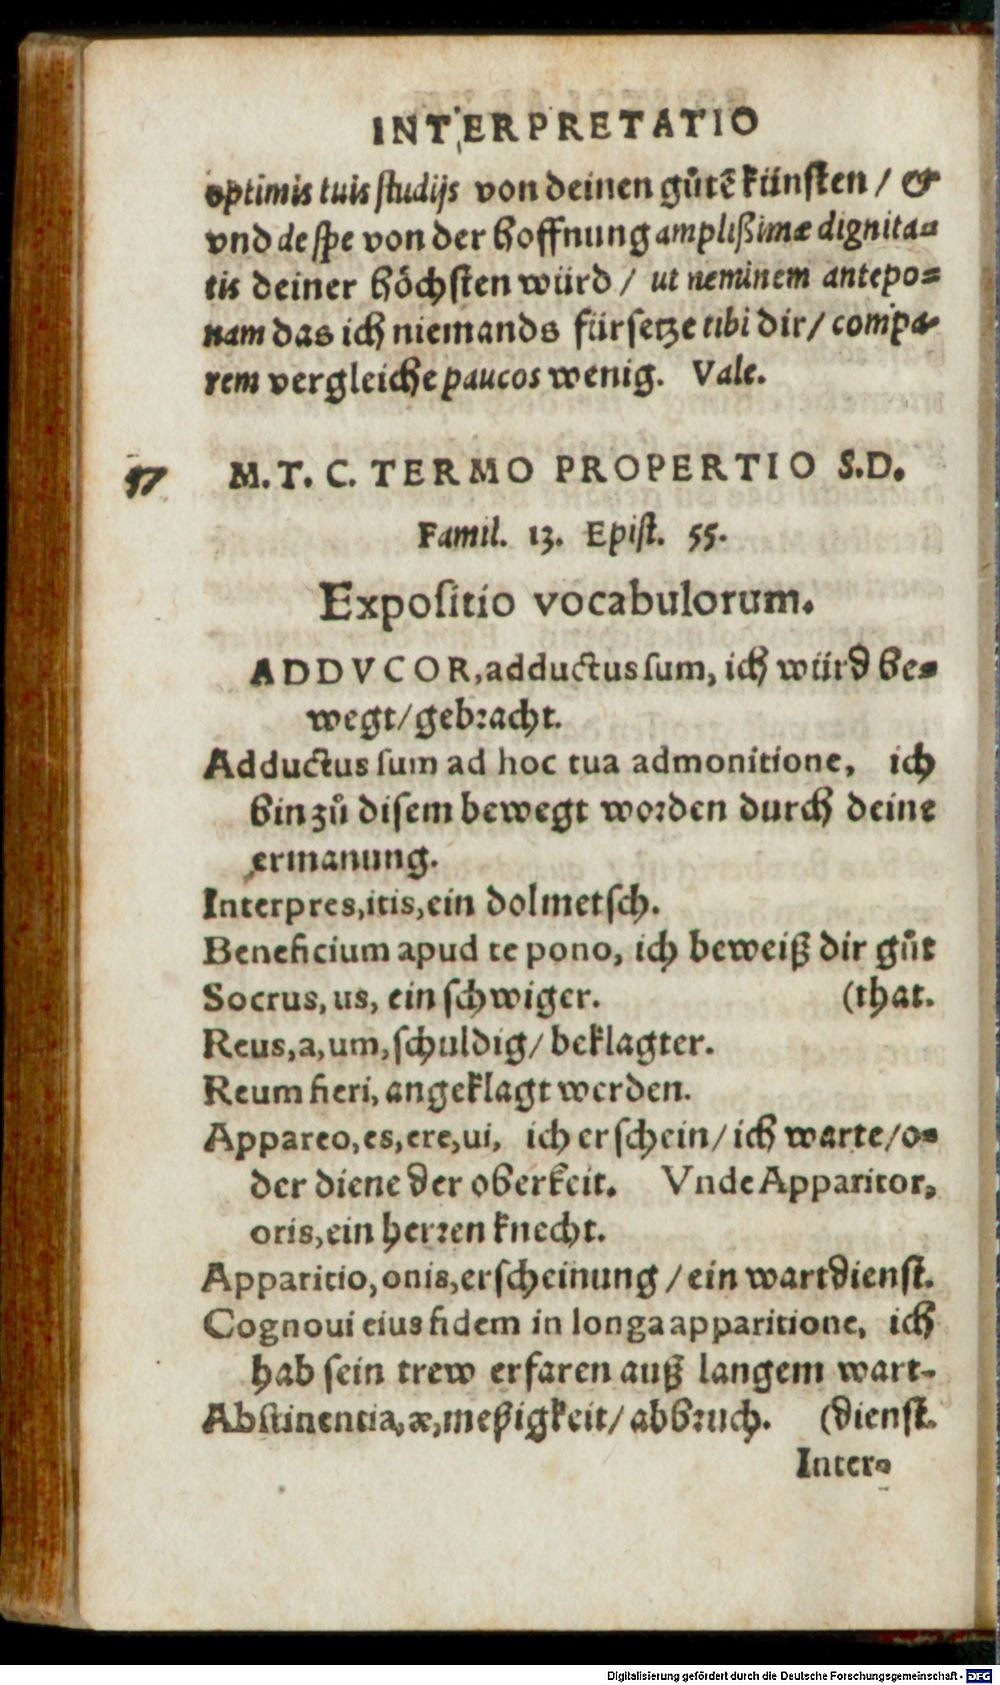 INTERPRETATIO
optimis tuis studijs von deinen gůtē künsten / &
vnd de spe von der hoffnung amplißimæ dignita-
tis deiner höchsten würd / ut neminem antepo-
nam das ich niemands fürsetze tibi dir / compa-
rem vergleiche paucos wenig. Vale.
57 M. T. C. TERMO PROPERTIO S.D.
Famil. 13. Epist. 55.
Expositio vocabulorum.
ADDVCOR, adductus sum, ich würd be-
wegt / gebracht.
Adductus sum ad hoc tua admonitione, ich
bin zů disem bewegt worden durch deine
ermanung.
Interpres, itis, ein dolmetsch.
Beneficium apud te pono, ich beweiß dir gůt
Socrus, us, ein schwiger. (that.
Reus, a, um, schuldig / beklagter.
Reum fieri, angeklagt werden.
Appareo, es, ere, ui, ich erschein / ich warte / o-
der diene der oberkeit. Vnde Apparitor,
oris, ein herren knecht.
Apparitio, onis, erscheinung / ein wartdienst.
Cognoui eius fidem in longa apparitione, ich
hab sein trew erfaren auß langem wart-
Abstinentia, æ, meßigkeit / abbruch. (dienst.
Inter-
Digitalisierung gefördert durch die Deutsche Forschungsgemeinschaft - DFG